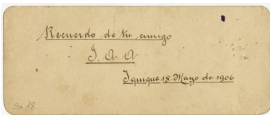 Recuerdo de tu amigo
J. A. A
Iquique 18 Mayo de 1906